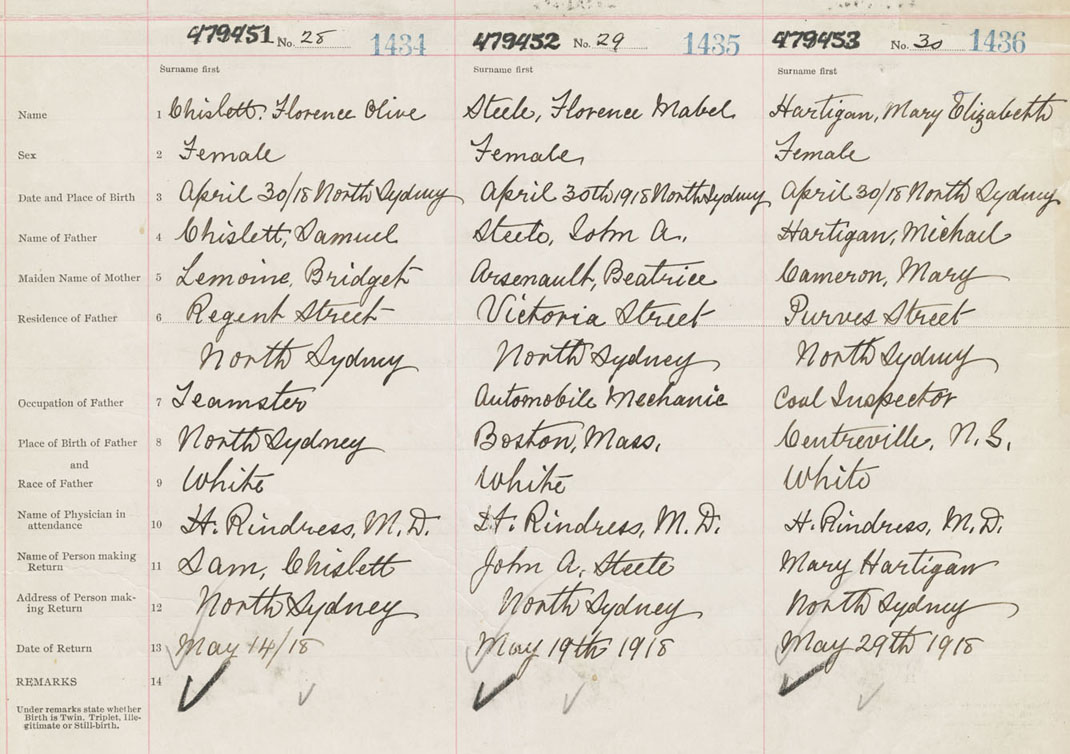 479451 No. 28 1434 479452 No. 29 1435 479453 No. 30 1436
Surname first Surname first Surname first
Name 1 Chislett, Florence Olive Steele, Florence Mabel Hartigan, Mary Elizabethth
Sex 2 Female Female Female
Date and Place of Birth 3 April 30/18 North Sydney April 30th 1918 North Sydney April 30/18 North Sydney
Name of Father 4 Chislett, Samuel Steele, John A. Hartigan, Michael
Maiden Name of Mother 5 Lemoine, Bridget Arsenault, Beatrice Cameron, Mary
Residence of Father 6 Regent Street Victoria Street Purves Street
North Sydney North Sydney North Sydney
Occupation of Father 7 Teamster Automobile Mechanic Coal Inspector
Place of Birth of Father 8 North Sydney Boston, Mass. Centreville, N.S.
and
Race of Father 9 White White White
Name of Physician in attendance 10 H. Rindress, M.D. H. Rindress, M.D. H. Rindress, M.D.
Name of Person making Return 11 Sam, Chislett John A. Steele Mary Hartigan
Address of Person mak-ing Return 12 North Sydney North Sydney North Sydney
Date of Return 13 May 14/18 May 19th 1918 May 29th 1918
REMARKS 14
Under remarks state whether
Birth is Twin, Triplet, Ille-
gitimate or Still-birth.